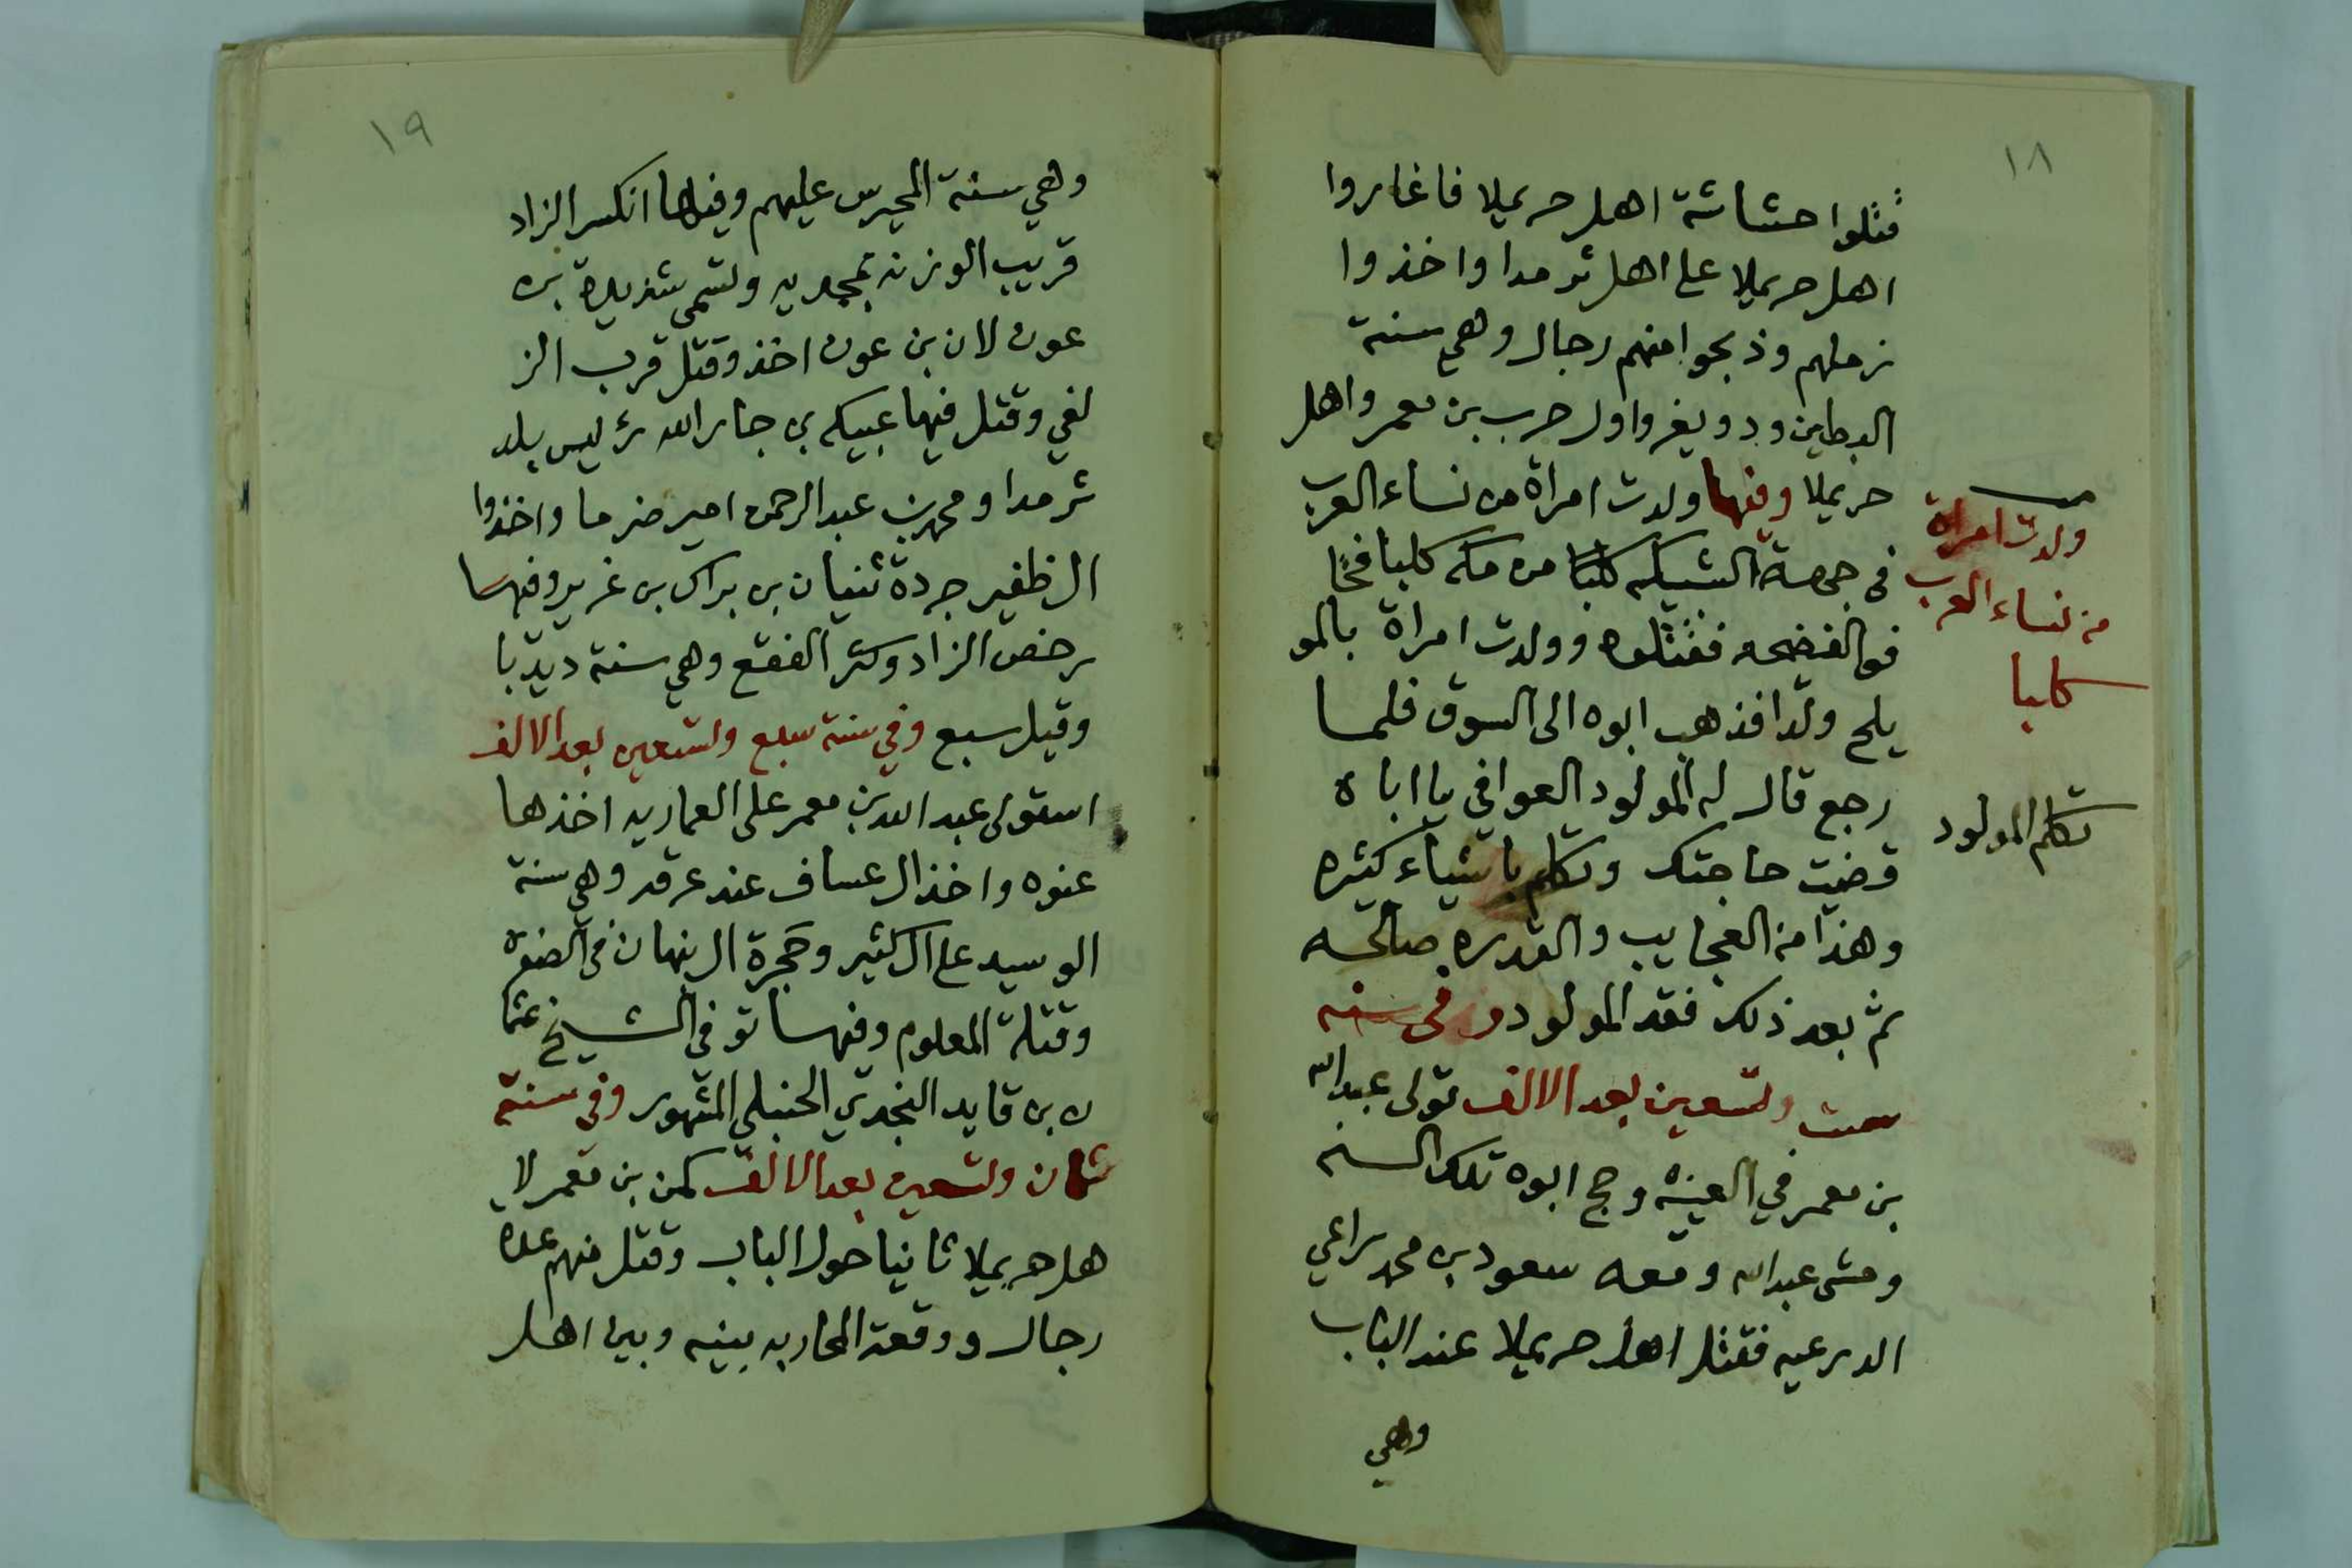 ١٨
قتلوا حشاشة اهل حريملا فاغاروا
اهل حريملا على اهل ثرمدا واخذوا
زملهم وذبحوا منهم رجال وهي سنة
البطاين ودويغر واول حرب بن معمر واهل
حريملا وفيها ولدت امراة من نساء العرب
في جهة الشبيكه كلبا من مكه كلبا
الفضحه فقتلوه وولدت امراة بالمو
يلح ولدا فذهب ابوه الى السوق فلما
رجع قال له المولود العوافي يا اباه
قضيت حاجتك وتكلم باشياء كثيره
وهذا من العجايب والقدره صالحه
ثم بعد ذلك فقد المولود وفي سنه
ست وتسعين بعد الالف تولى عبدالله
بن معمر في العيينه وحج ابوه تلك السنه
ومشى عبدالله ومعه سعود بن محمد راعي
الدرعيه فقتل اهل حريملا عند الباب
وهي
ولدت امراة
من نساء العرب
كلبا
تكلم المولود
١٩
وهي سنة المحيرس عليهم وفيها انكسر الزاد
قريب الوزنه بمحمديه وتسمى شديدة بن
عون لان بن عون اخذ وقتل قرب الز
لفي وقتل فيها عبيكه بن جارالله رئيس بلد
ثرمدا ومحمد بن عبدالرحمن امير ضرما واخذوا
ال ظفير جردة ثنيان بن براك بن غرير وفيها
رخص الزاد وكثر الفقع وهي سنة ديدبا
وقيل سبع وفي سنة سبع وتسعين بعد الالف
استولى عبدالله بن معمر على العماريه اخذها
عنوه واخذ ال عساف عند عرقه وهي سنة
الوسيد على ال كثير وحجرة ال نبهان في الصفره
وقتلة المعلوم وفيها توفي الشيخ عثما
ن بن قايد النجدي الحنبلي المشهور وفي سنة
ثمان وتسعين بعد الالف كمن بن معمر لا
هل حريملا ثانيا حول الباب وقتل منهم عده
رجال ووقعة المحاربه بينه وبين اهل